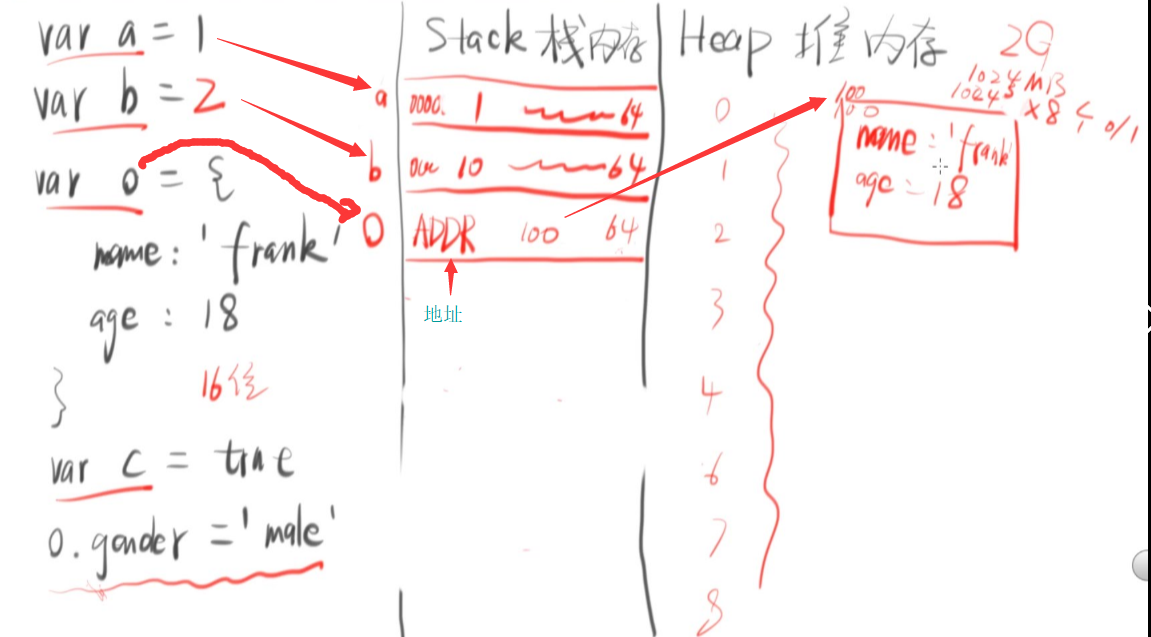 var a = 1
var b = 2
var o = {
name: 'frank'
age : 18
}
16位
var c = true
o.gender = 'male'
Stack 栈内存
a 000. 1 64
b 10 64
o ADDR 100 64
地址
Heap 堆内存
2G
1024 MB
1024³ ×8 个 0/1
0
1
2
3
4
6
7
8
100
100
name : 'frank'
age : 18